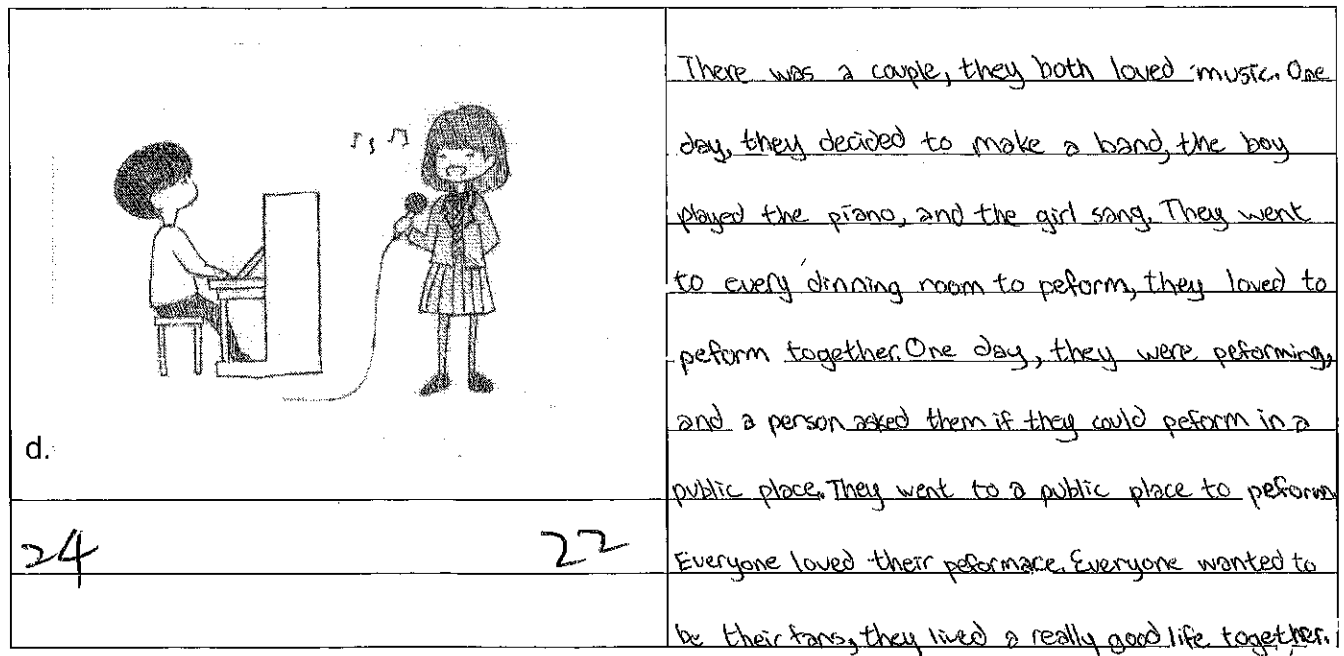 d.
24 22
There was a couple, they both loved music. One
day, they decided to make a band, the boy
played the piano, and the girl sang. They went
to every dinning room to peform, they loved to
peform together. One day, they were peforming,
and a person asked them if they could peform in a
public place. They went to a public place to peform
Everyone loved their peformace. Everyone wanted to
be their fans, they lived a really good life together.